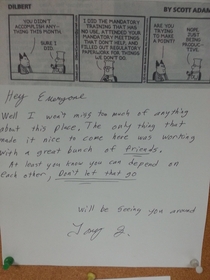 DILBERT
BY SCOTT ADAM
YOU DIDN'T
ACCOMPLISH ANY-
THING THIS MONTH.
SURE I
DID.
I DID THE MANDATORY
TRAINING THAT HAS
NO USE, ATTENDED YOUR
MANDATORY MEETINGS
THAT DON'T HELP, AND
FILLED OUT REGULATORY
PAPERWORK FOR THINGS
WE DON'T DO.
ARE YOU
TRYING TO
MAKE A
POINT?
NOPE.
JUST
BEING
PRODUC-
TIVE.
Hey Everyone
Well I won't miss too much of anything
about this place. The only thing that
made it nice to come here was working
with a great bunch of friends.
At least you know you can depend on
each other, Don't let that go
will be seeing you around